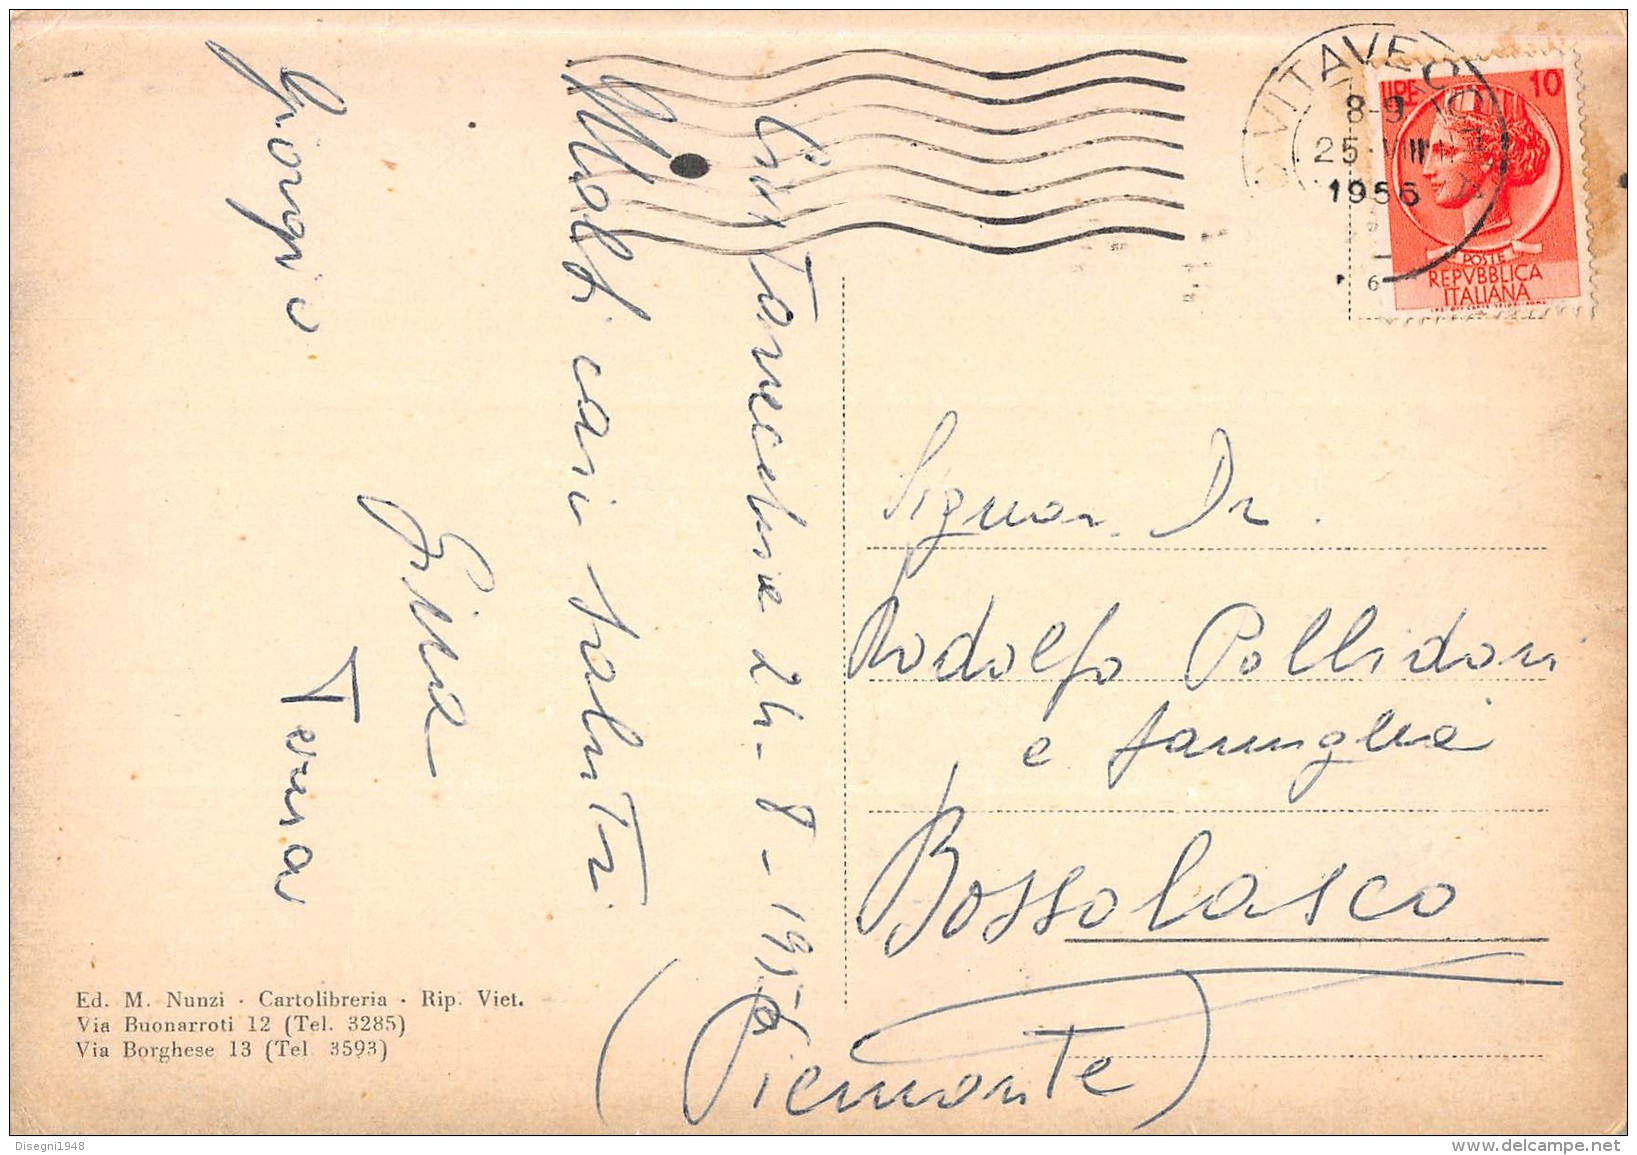 Civitavecchia 24-8-1956
Molti cari saluti
Gina
Giorgio
CIVITAVECCHIA
8-9
25·VIII
1956
LIRE 10
POSTE
REPVBBLICA
ITALIANA
6
Signor Dr.
Rodolfo Pollidori
e famiglia
Bossolasco
(Piemonte)
Ed. M. Nunzi · Cartolibreria · Rip. Viet.
Via Buonarroti 12 (Tel. 3285)
Via Borghese 13 (Tel 3593)
Disegni1948
www.delcampe.net